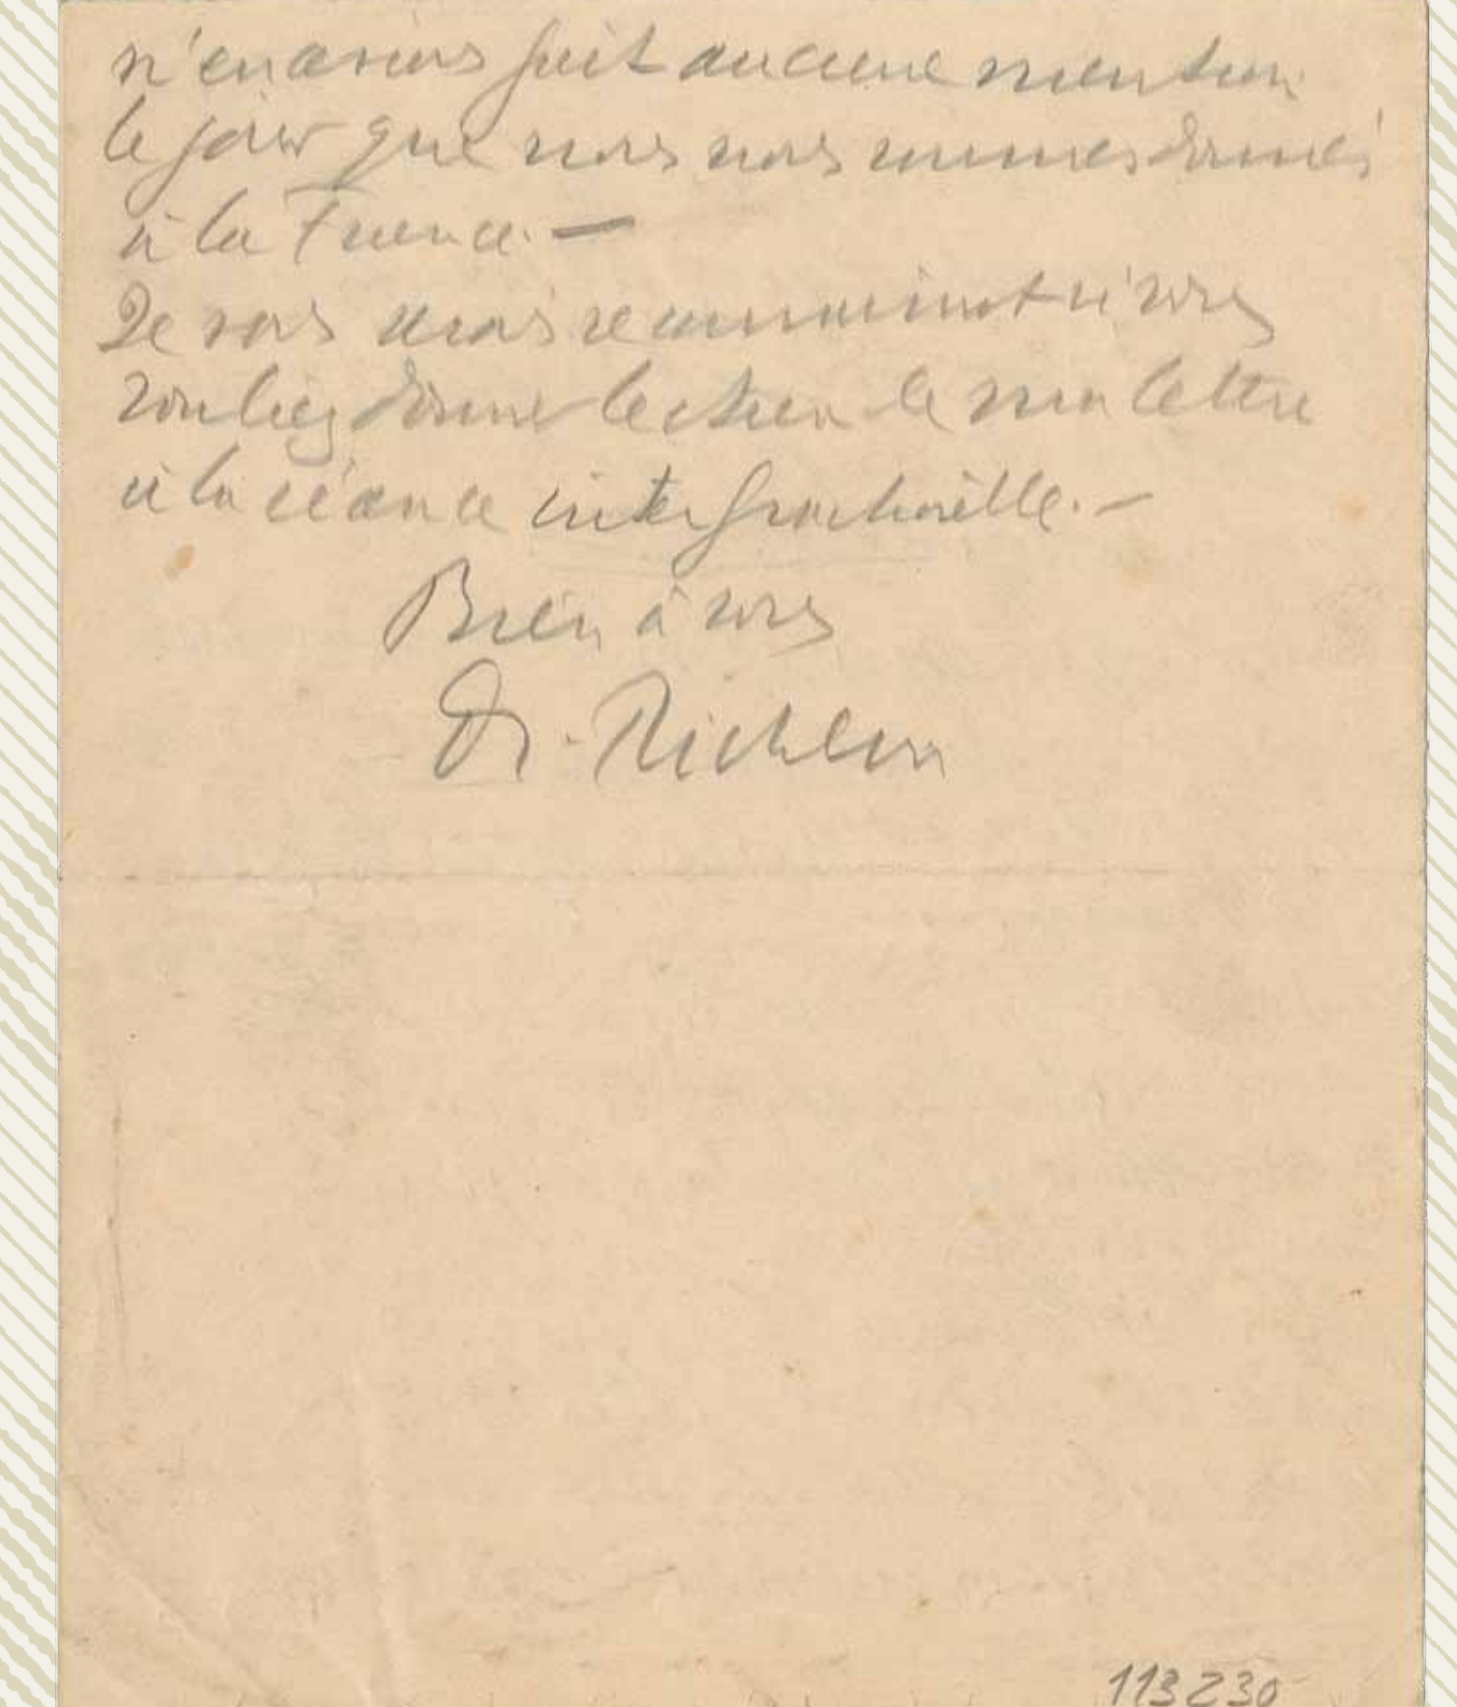 n'en avions fait aucune mention
le jour que nous nous sommes donnés
à la France. —
Je vous serais reconnaissant si vous
vouliez donner lecture de ma lettre
à la séance interfractionelle. —
Bien à vous
Dr. Ricklin
113230